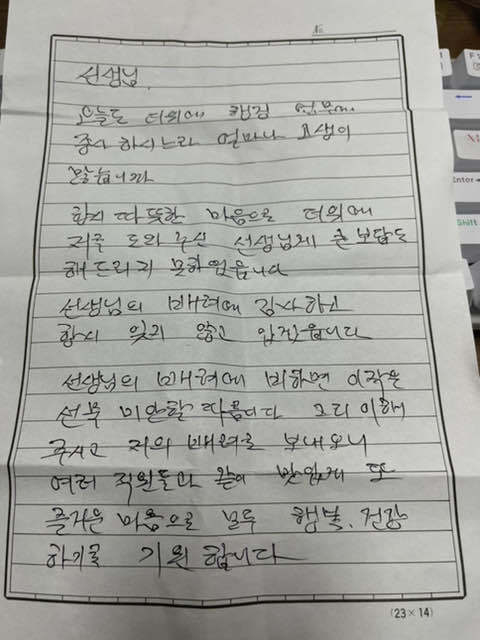 No.
선생님.
오늘도 더위에 행정 업무에
종사 하시느라 얼마나 고생이
많습니까
항시 따뜻한 마음으로 더위에
저를 도와 주신 선생님께 큰 보답도
해드리지 못하였읍니다
선생님의 배려에 감사하고
항시 잊지 않고 있겠읍니다
선생님의 배려에 비하면 이 작은
선물 미안할 따름니다 그리 이해
주시고 저의 배려를 보내오니
여러 직원들과 같이 맛있게 또
즐거운 마음으로 모두 행복, 건강
하기를 기원 합니다
(23×14)
Enter
Shift